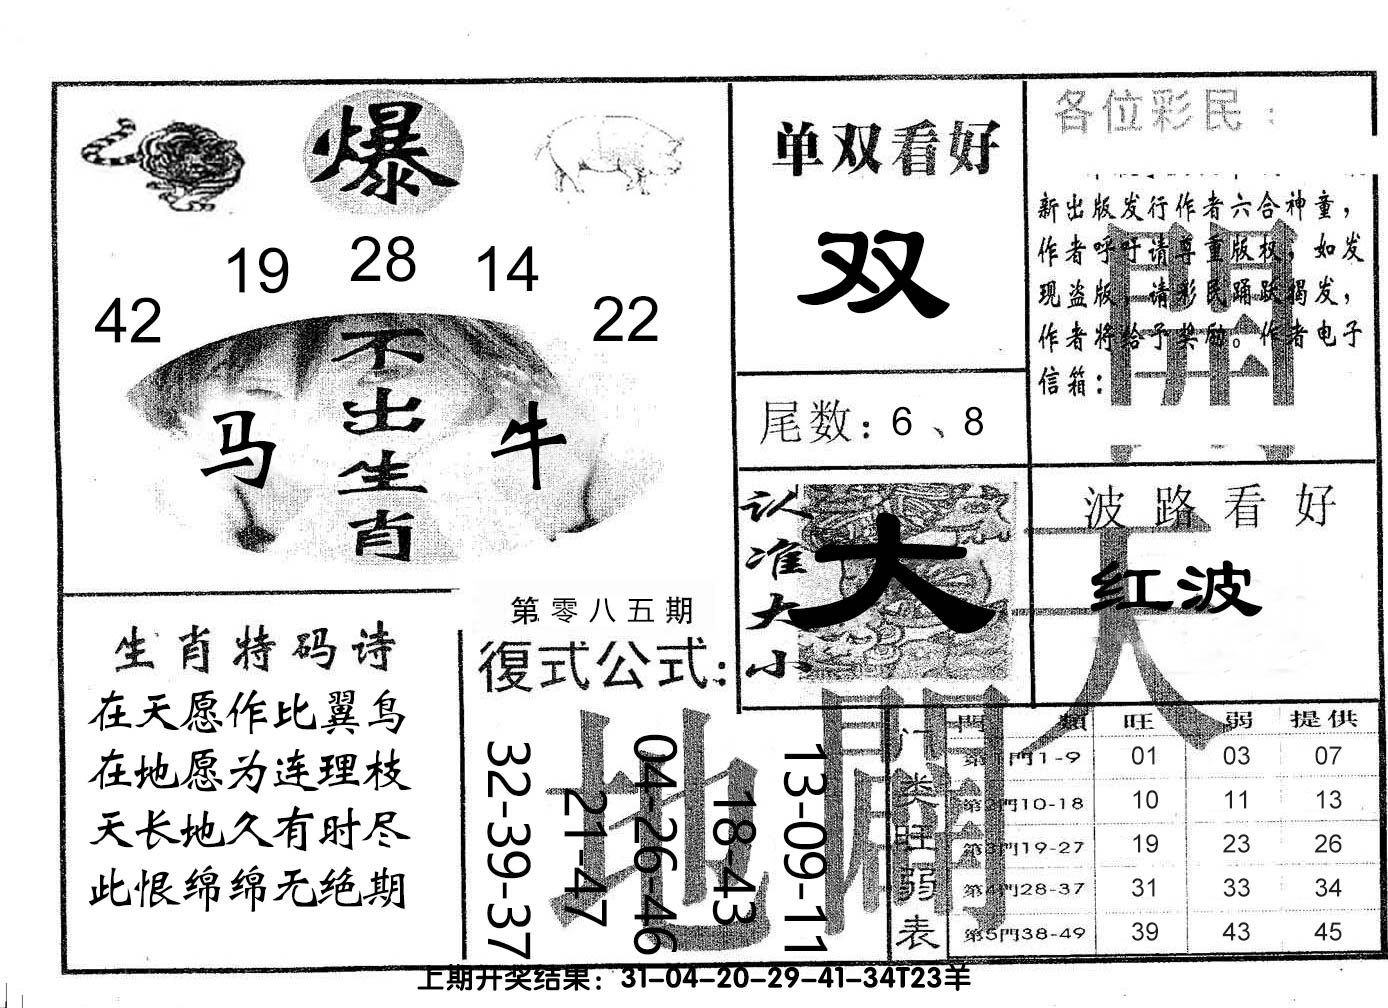 爆
19 28 14
42 22
不出生肖
马 牛
生肖特码诗
在天愿作比翼鸟
在地愿为连理枝
天长地久有时尽
此恨绵绵无绝期
第零八五期
復式公式：
32-39-37
21-47
04-26-46
18-43
13-09-11
单双看好
双
尾数：6、8
认准大小
大
各位彩民：
新出版发行作者六合神童，
作者呼吁请尊重版权，如发
现盗版，请彩民踊跃揭发，
作者将给予奖励。作者电子
信箱：
波路看好
红波
天
地
開
门类旺弱表
門類 旺 弱 提供
第1門1-9 01 03 07
第2門10-18 10 11 13
第3門19-27 19 23 26
第4門28-37 31 33 34
第5門38-49 39 43 45
上期开奖结果：31-04-20-29-41-34T23羊